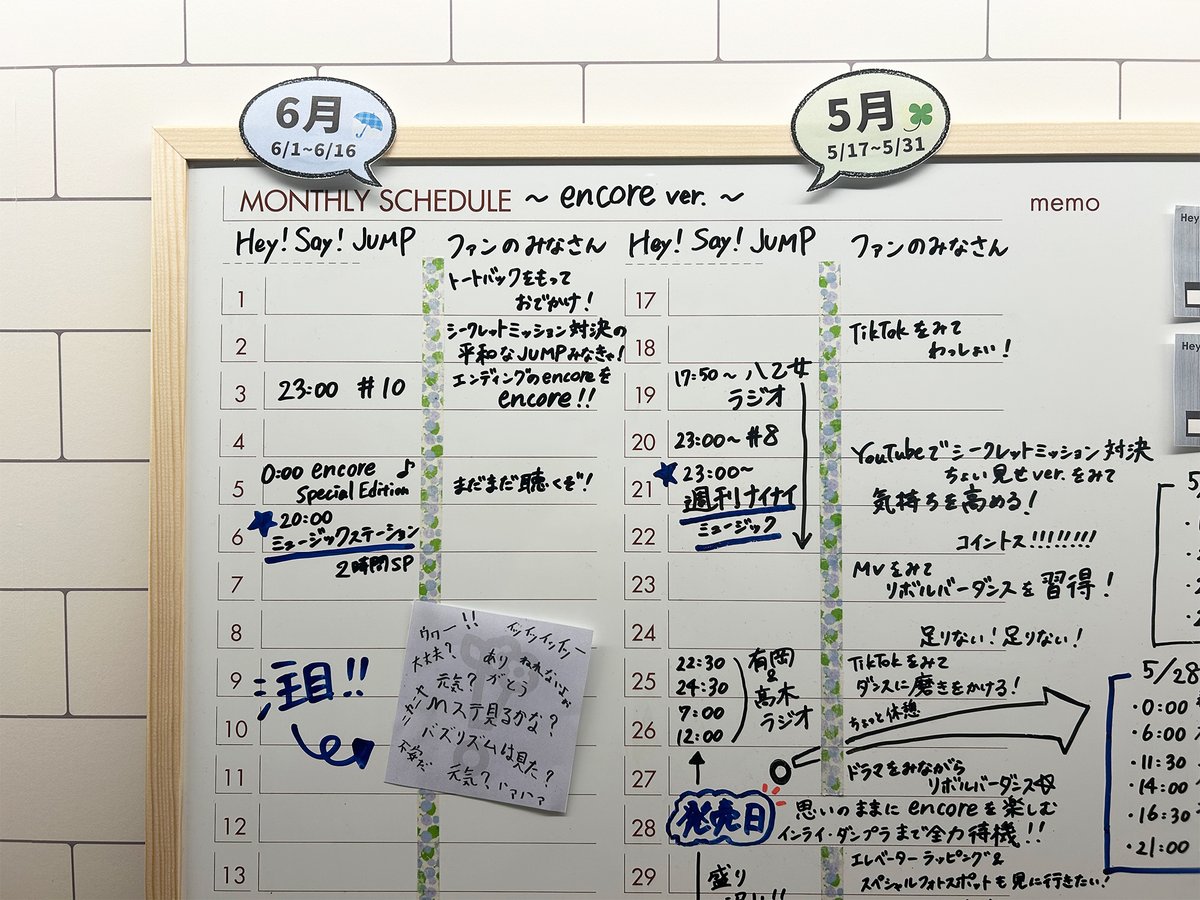 6月
6/1~6/16
5月
5/17~5/31
MONTHLY SCHEDULE ~ encore ver. ~
memo
Hey! Say! JUMP
ファンのみなさん
1
トートバックをもって
おでかけ!
2
シークレットミッション対決の
平和なJUMPみなきゃ!
3
23:00 #10
エンディングのencoreを
encore!!
4
5
0:00 encore ♪
Special Edition
まだまだ聴くぞ!
6
★20:00
ミュージックステーション
2時間SP
7
8
9
注目!!
10
11
12
13
ウワー!!
イッイッイッイッー
大丈夫?
あり
がとう
元気?
Mステ見るかな?
バズリズムは見た?
元気?
Hey! Say! JUMP
ファンのみなさん
17
18
TikTokをみて
わっしょい!
19
17:50~ 八乙女
ラジオ
20
23:00~ #8
YouTubeでシークレットミッション対決
ちょい見せver.をみて
21
★23:00~
週刊ナイナイ
気持ちを高める!
22
ミュージック
コイントス!!!!!!!!
23
MVをみて
リボルバーダンスを習得!
24
足りない!足りない!
25
22:30
24:30
有岡
&
髙木
ラジオ
TikTokをみて
ダンスに磨きをかける!
26
7:00
12:00
ちょっと休憩
27
ドラマをみながら
リボルバーダンス
28
発売日
思いのままにencoreを楽しむ
インライ・ダンプラまで全力待機!!
29
盛り
エレベーターラッピング&
スペシャルフォトスポットも見に行きたい!
Hey
Hey
5
5/28
・0:00
・6:00
・11:30
・14:00
・16:30
・21:00